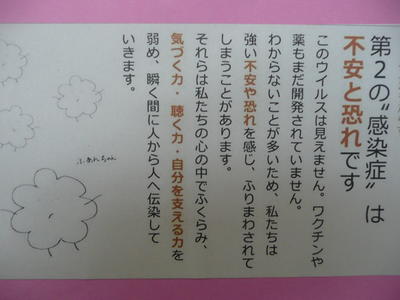 第2の“感染症”は
不安と恐れです
このウイルスは見えません。ワクチンや
薬もまだ開発されていません。
わからないことが多いため、私たちは
強い不安や恐れを感じ、ふりまわされて
しまうことがあります。
それらは私たちの心の中でふくらみ、
気づく力・聴く力・自分を支える力を
弱め、瞬く間に人から人へ伝染して
いきます。
ふあんちゃん